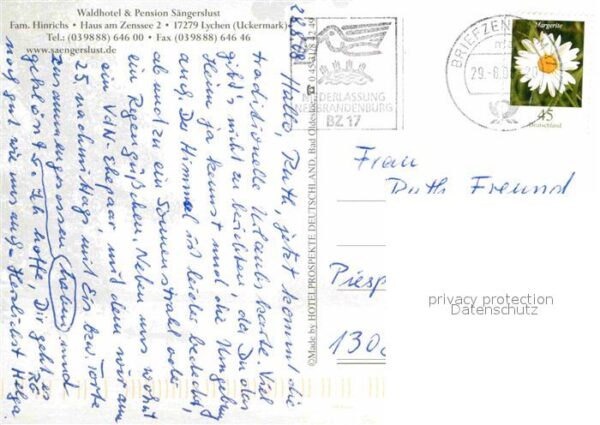 Waldhotel & Pension Sängerslust
Fam. Hinrichs • Haus am Zenssee 2 • 17279 Lychen (Uckermark)
Tel.: (039888) 646 00 • Fax (039888) 646 46
www.saengerslust.de
Hallo, Ruth, jetzt kommt die
traditionelle Urlaubskarte. Viel
gibt's nicht zu berichten, da Du das
Heim ja kennst und die Umgebung
auch. Der Himmel ist leider bedeckt,
ab und zu ein Sonnenstrahl oder
ein Regengüßchen. Neben uns wohnt
ein VdN-Ehepaar, mit dem wir am
25. nachmittags mit Eis bzw. Torte
zum genossen haben und
Ich hoffe, Dir geht es
gut wie uns - Herzlichst Helga.
©Made by HOTELPROSPEKTE DEUTSCHLAND, Bad Oldesloe
BRIEFZEN
29.-8.0
NIEDERLASSUNG
NEUBRANDENBURG
BZ 17
Margerite
45
Deutschland
Frau
Ruth Freund
Piesp
130
privacy protection
Datenschutz